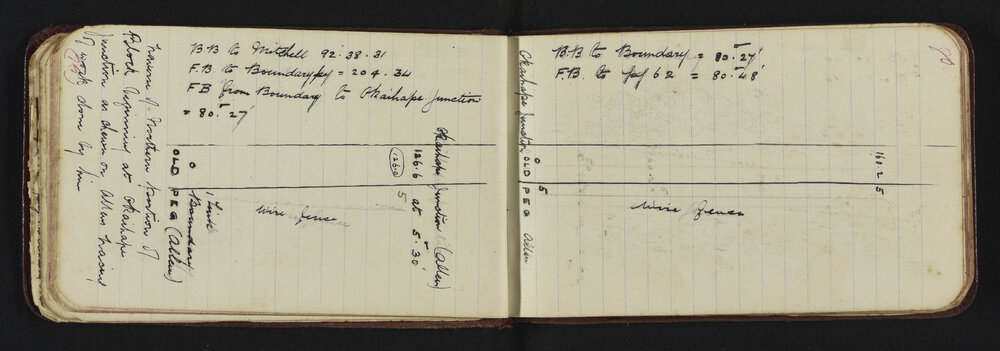 B.B to Mitchell 92.38.31
F.B to Boundary peg = 204.34
F B from Boundary to Okaihape Junction
= 80° 27'
Traverse of Northern Portion of
Block beginning at Okaihape
Junction as shewn on Allens tracing
of work done by him
OLD PEG (Allen)
0
1 Link
Boundary
Wire fence
126.0
5
126.6 at 5° 30'
Okaihape Junction (Allen)
B.B to Boundary = 80° 27'
F.B. to peg 62 = 80° 48'
Okaihape Junction
0
OLD PEG Allen
5
Wire fence
160.2
5